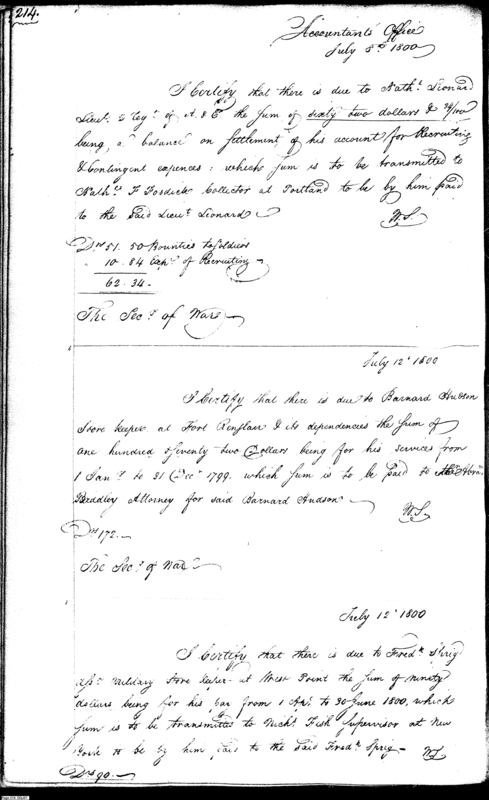 214.
Accountants Office
July 8th 1800
I Certify that there is due to Nathl. Leonard
Lieut. & Regt. of A. & E the sum of sixty two dollars & 34/100
being a balance on Settlement of his account for Recruiting
& Contingent expences: which sum is to be transmitted to
Nathl. F Fosdick Collector at Portland to be by him paid
to the said Lieut. Leonard
W.S.
Drs 51. 50 Bounties to soldiers
10. 84 Exps. of Recruiting
62. 34.
The Secy. of War
July 12th 1800
I Certify that there is due to Barnard Hudson
Store keeper at Fort & its dependencies the sum of
one hundred & seventy two Dollars being for his services from
1 Jany. to 31 Decr. 1799. which sum is to be paid to Abrm.
Bradley Attorney for said Barnard Hudson
W.S.
Drs 172.
The Secy. of War
July 12th 1800
I Certify that there is due to Fredk. Sprig
Asst. Military Store keeper at West Point the sum of ninety
dollars being for his pay from 1 Apl. to 30 June 1800, which
sum is to be transmitted to Nichs. Fish Supervisor at New
York to be by him paid to the said Fredk. Sprig
WS
Drs 90.